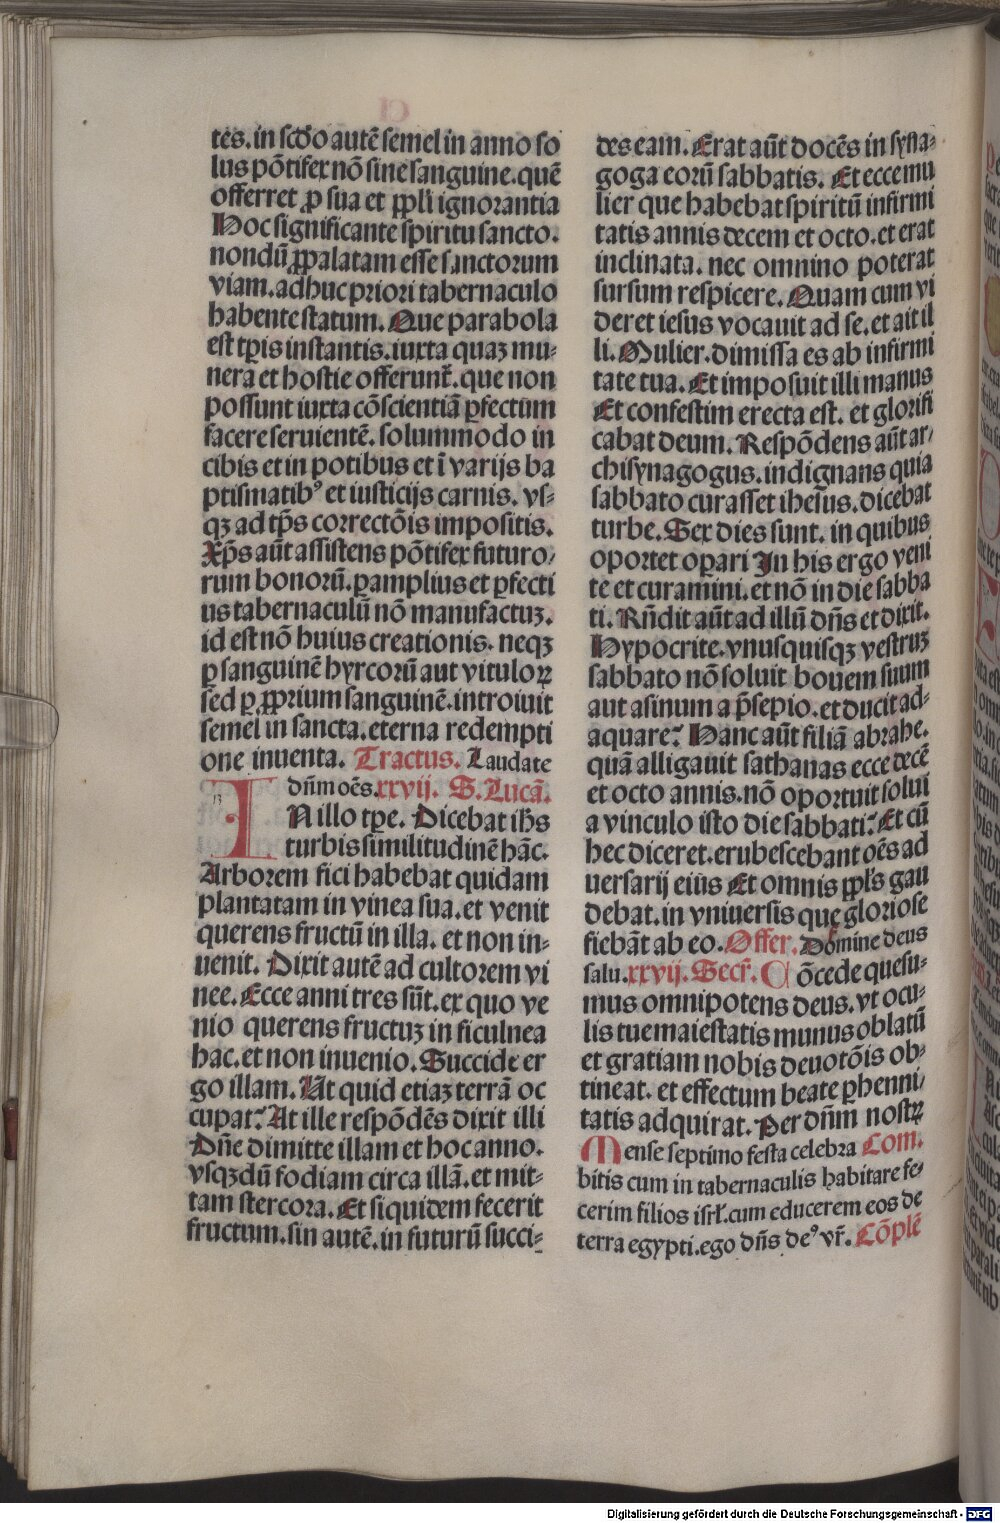 tes. in scd̄o autē semel in anno so
lus pōtifex nō sine sanguine. quē
offerret ꝓ sua et ppl̄i ignorantia
Hoc significante spiritu sancto.
nondū ꝓpalatam esse sanctorum
viam. adhuc priori tabernaculo
habente statum. Que parabola
est tꝑis instantis. iuxta quaꝫ mu-
nera et hostie offerunt̄. que non
possunt iuxta cōscientiā ꝑfectum
facere seruientē. solummodo in
cibis et in potibus et ī varijs ba
ptismatibꝰ et iusticijs carnis. vs-
qꝫ ad tp̄s correctōis impositis.
Xp̄s aūt assistens pōtifex futuro/
rum bonorū. ꝑ amplius et ꝑfecti
us tabernaculū nō manufactuꝫ.
id est nō huius creationis. neqꝫ
ꝑ sanguinē hyrcorū aut vituloꝝ
sed ꝑ ꝓprium sanguinē. introiuit
semel in sancta. eterna redempti
one inuenta. Tractus. Laudate
dn̄m oēs. xxvij. S. Lucā.
IN illo tꝑe. Dicebat ih̄s
turbis similitudinē hāc.
Arborem fici habebat quidam
plantatam in vinea sua. et venit
querens fructū in illa. et non in-
uenit. Dixit autē ad cultorem vi
nee. Ecce anni tres sūt. ex quo ve
nio querens fructuꝫ in ficulnea
hac. et non inuenio. Succide er
go illam. Ut quid etiaꝫ terrā oc
cupat? At ille respōdēs dixit illi
Dn̄e dimitte illam et hoc anno.
vsqꝫ dū fodiam circa illā. et mit-
tam stercora. Et siquidem fecerit
fructum. sin autē. in futurū succi-
des eam. Erat aūt docēs in syna-
goga eorū sabbatis. Et ecce mu
lier que habebat spiritū infirmi
tatis annis decem et octo. et erat
inclinata. nec omnino poterat
sursum respicere. Quam cum vi
deret iesus vocauit ad se. et ait il
li. Mulier. dimissa es ab infirmi
tate tua. Et imposuit illi manus
Et confestim erecta est. et glorifi
cabat deum. Respōdens aūt ar/
chisynagogus. indignans quia
sabbato curasset ihes̄us. dicebat
turbe. Sex dies sunt. in quibus
oportet oꝑari In his ergo veni
te et curamini. et nō in die sabba
ti. Rn̄dit aūt ad illū dn̄s et dixit.
Hypocrite. vnusquisqꝫ vestruꝫ
sabbato nō soluit bouem suum
aut asinum a p̄sepio. et ducit ad-
aquare? Hanc aūt filiā abrahe.
quā alligauit sathanas ecce decē
et octo annis. nō oportuit solui
a vinculo isto die sabbati? Et cū
hec diceret. erubescebant oēs ad
uersarij eius Et omnis ppl̄s gau
debat. in vniuersis que gloriose
fiebāt ab eo. Offer. Domine deus
salu. xxvij. Secr̄. Cōcede quesu-
mus omnipotens deus. vt ocu-
lis tue maiestatis munus oblatū
et gratiam nobis deuotōis ob-
tineat. et effectum beate ꝑhenni/
tatis adquirat. Per dn̄m nostꝝ
Mense septimo festa celebra Com.
bitis cum in tabernaculis habitare fe/
cerim filios isrl̄. cum educerem eos de
terra egypti. ego dn̄s deꝰ vr̄. Cōplē
Digitalisierung gefördert durch die Deutsche Forschungsgemeinschaft - DFG